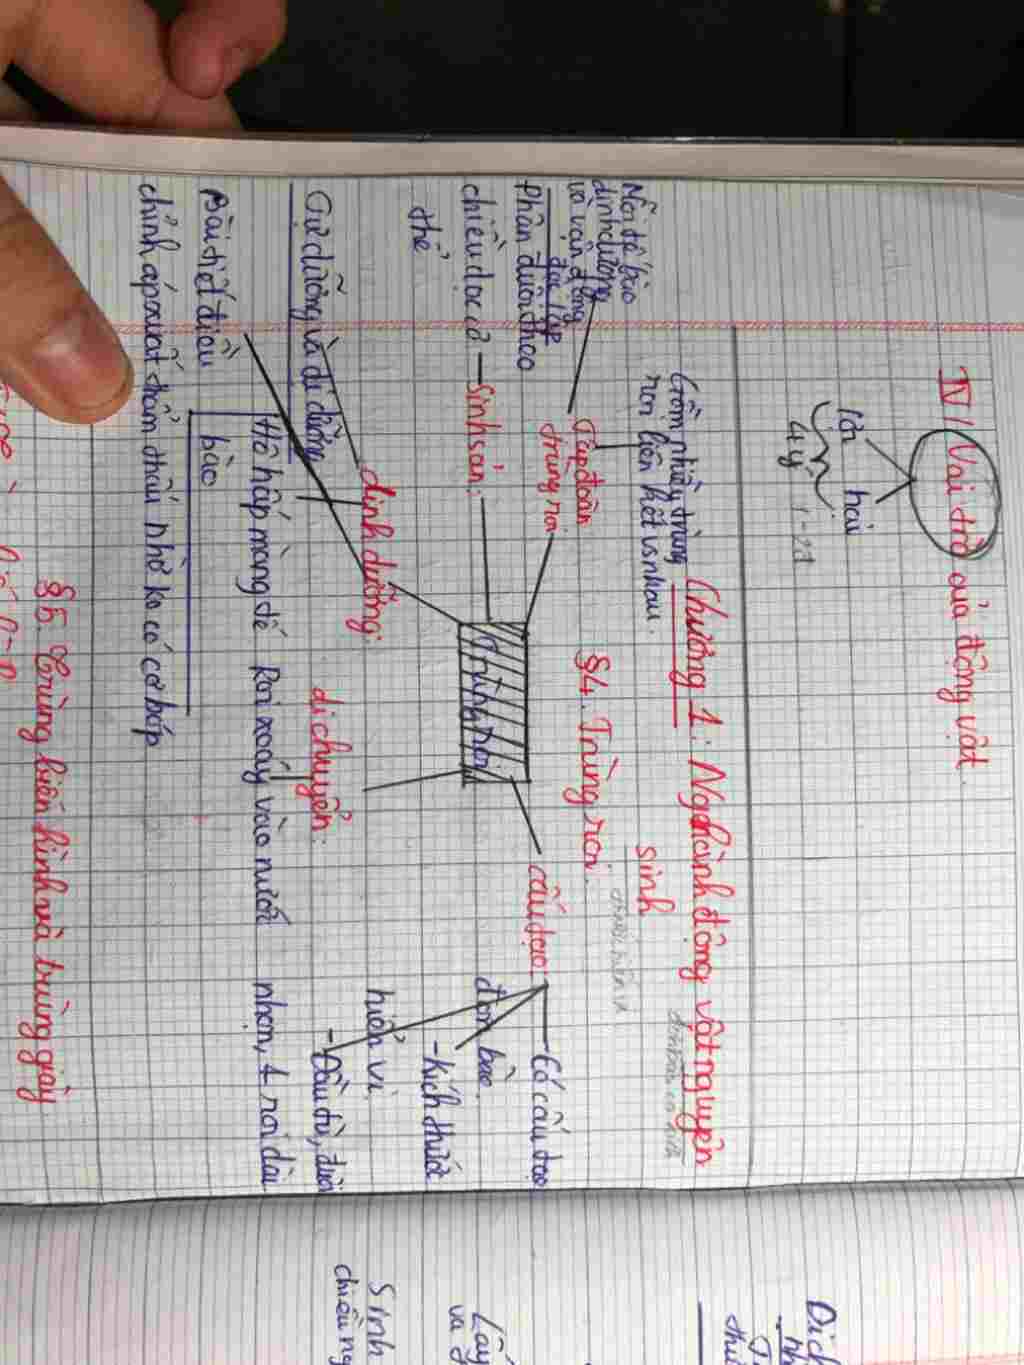 IV/ Vai trò của động vật.
lợi hại
4 ý 1-2đ
Chương 1: Ngành động vật nguyên
sinh
§4. Trùng roi.
Gồm nhiều trùng
roi liên kết vs nhau.
Tập đoàn
trùng roi
Mỗi tế bào
dinh dưỡng
và vận động
độc lập
Sinh sản:
Phân đuôi theo
chiều dọc cơ
thể
Trùng roi
cấu tạo:
- Có cấu tạo
đơn bào.
- Kích thước
hiển vi.
- Đầu tù, đuôi
nhọn, 1 roi dài
dinh dưỡng:
Tự dưỡng và dị dưỡng
Hô hấp màng tế
bào
Bài tiết điều
chỉnh áp xuất thẩm thấu nhờ ko có cơ bóp
di chuyển:
Roi xoáy vào nước
§5. Trùng biến hình và trùng giày
Sinh
chiều ng
Lấy